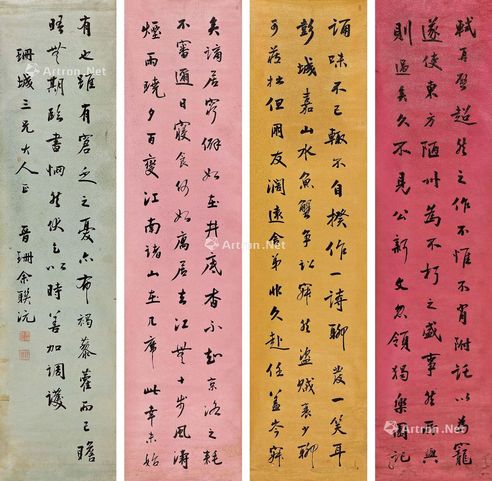 軾再啓超然之作不惟不肖附託以為寵
遂使東方陋州為不朽之盛事然與
則過矣久不見公新文忽領獨樂園記
誦味不已輒不自揆作一詩聊發一笑耳
彭城嘉山水魚蟹爭訟寂然盜賊衰少聊
可藏拙但朋友濶遠舍弟非久赴任益岑寂
矣謫居窮僻如在井底杳不知京洛之耗
不審邇日寢食何如寓居去江無十步風濤
煙雨曉夕百變江南諸山在几席此幸未始
有也雖有窘乏之憂亦布褐藜藿而已瞻
晤無期臨書惘然伏乞以時善加調護
珊城三兄大人正 晉珊余聯沅
Artron.Net
Artron.Net
Artron.Net
Artron.Net